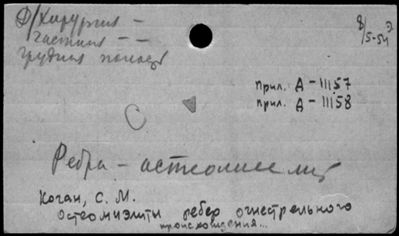 Ф/Хирургия –
частная – –
грудная полость
8/5-54
Прил. А – 11157
прил. А – 11158
С
Ребра – остеомиелит
Коган, С. М.
Остеомиэлиты ребер огнестрельного
происхождения...